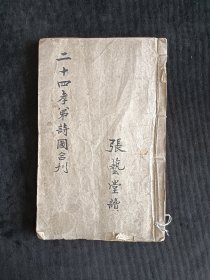 二十四孝弟詩圖合刊
張藝堂讀